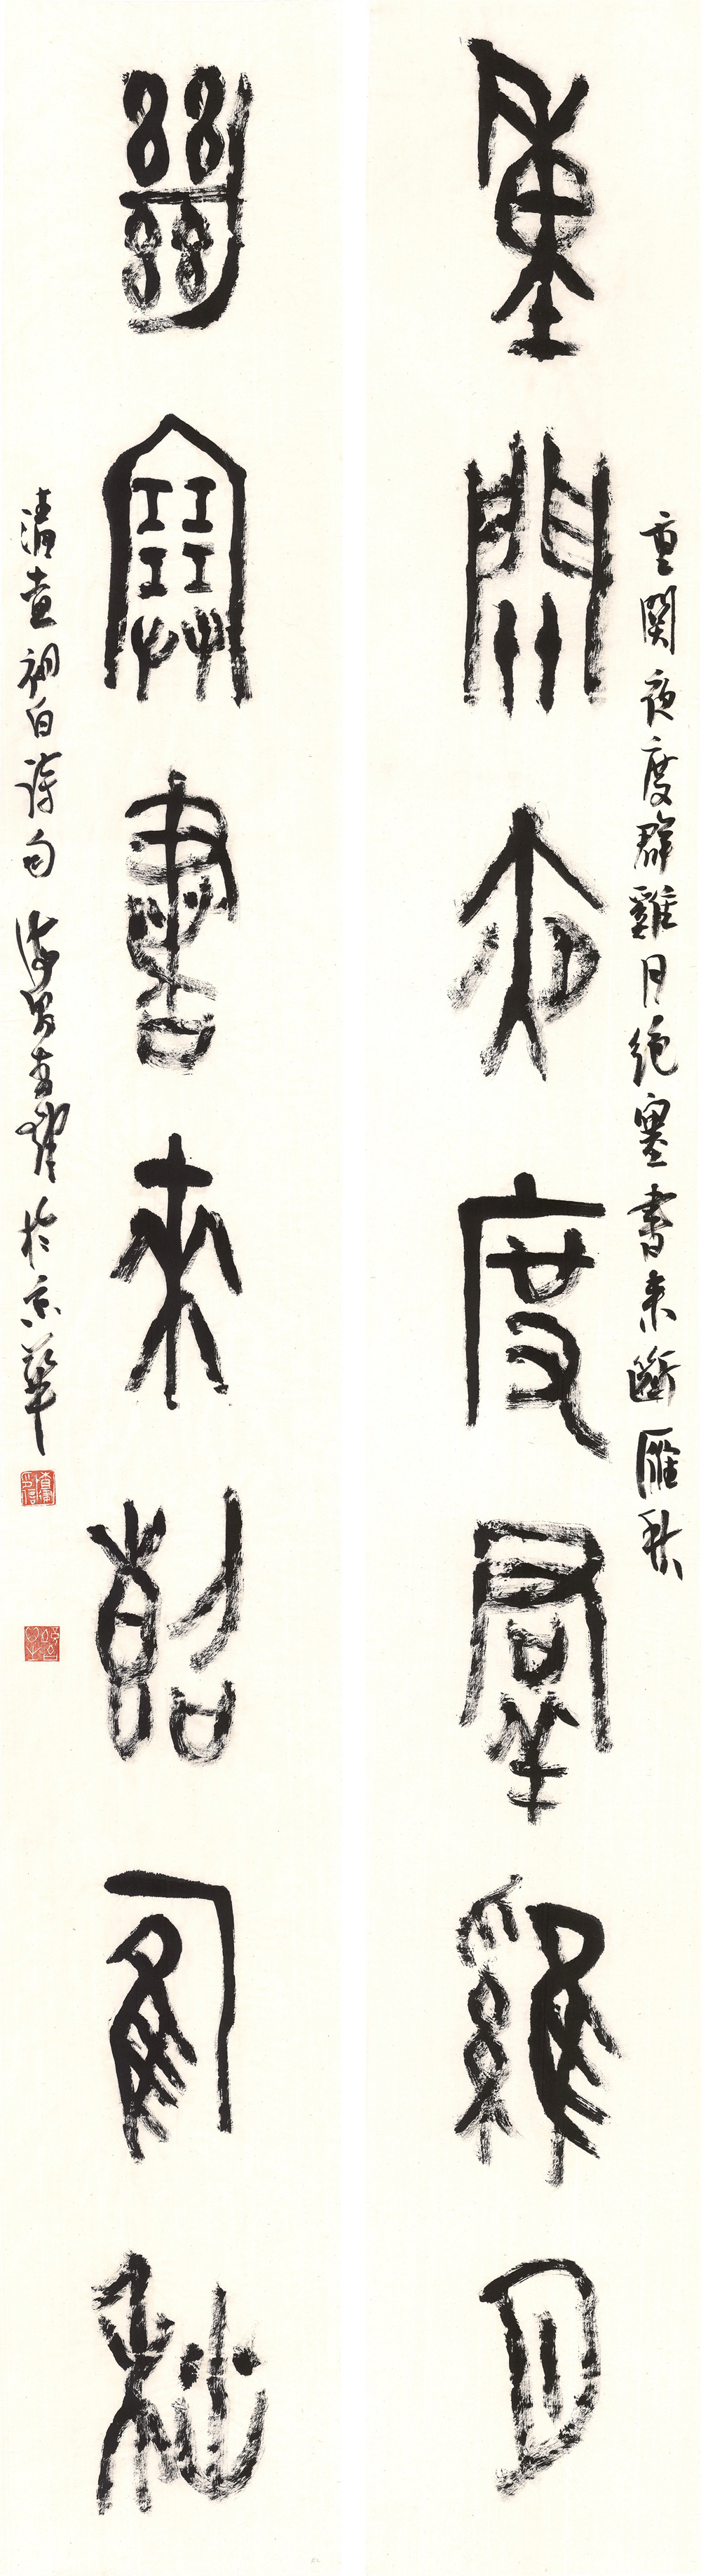 重関夜度群雞月絕塞書來斷雁秋
重關夜度群雞月
絕塞書來斷雁秋
清查初白詩句 於京華